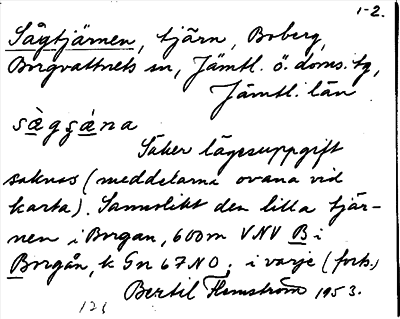 1-2.
Sågtjärnen, tjärn, Boberg,
Borgvattnets sn, Jämtl. ö. doms. tg,
Jämtl. län
sàgꞩána
Säker lägesuppgift
saknas (meddelarna ovana vid
karta). Sannolikt den lilla tjär-
nen i Borgan, 600m VNV B i
Borgån, k Gn 67 NO; i varje (forts.)
Bertil Flemström 1953.